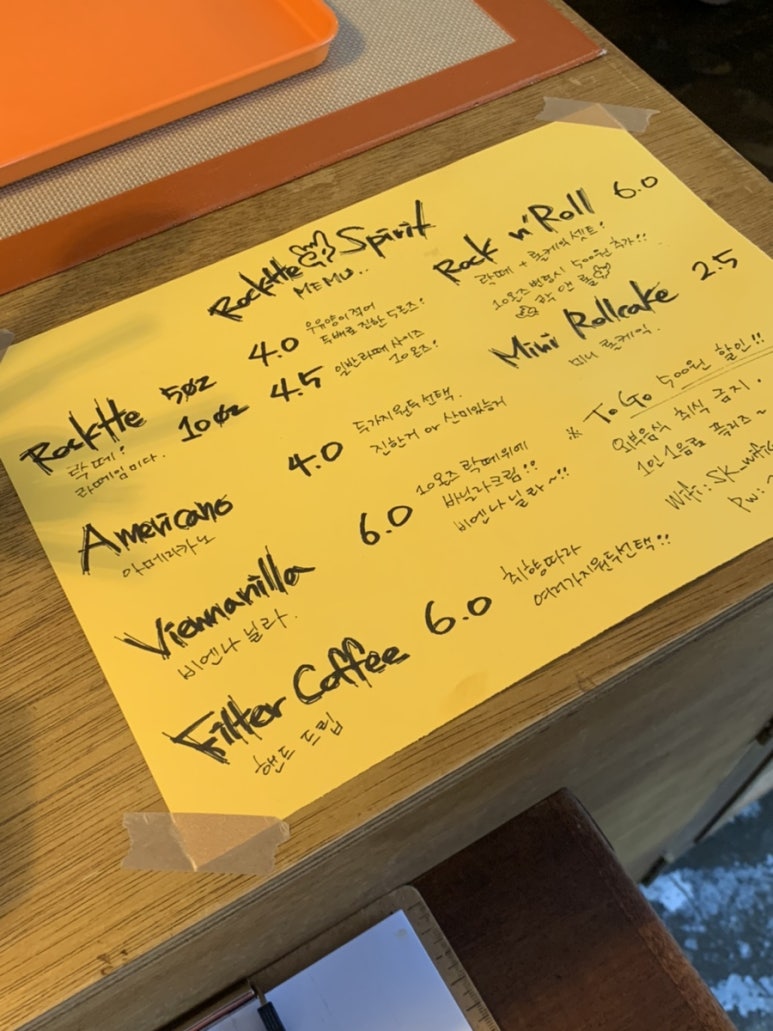 Rocktte Spirit
MEMU..
Rocktte 5oz 4.0 우유양이적어
두배로진한 5온즈!
10oz 4.5 일반라떼사이즈
10온즈!
락떼?
라떼임미다.
Americano 4.0 두가지원두선택.
진한거 or 산미있는거
아메리카노
Viennanilla 6.0 10온즈 락떼위에
바닐라크림!!
비엔나 닐라~!!
비엔나 닐라.
Filter Coffee 6.0 취향따라
여러가지원두선택!!
핸드 드립
Rock n' Roll 6.0
락떼 + 롤케익 셋트!
10온즈변경시 500원 추가!!
락 앤 롤
Mini Rollcake 2.5
미니 롤케익.
※ ToGo 500원 할인!!
외부음식 취식 금지.
1인 1음료 플리즈~
Wifi: SK_wifi
Pw: ~